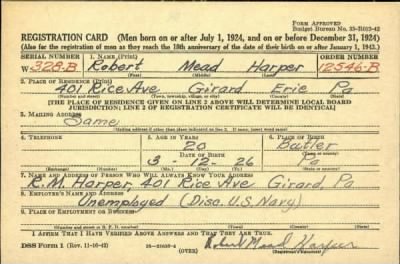 FORM APPROVED
Budget Bureau No. 33-R012-42
REGISTRATION CARD (Men born on or after July 1, 1924, and on or before December 31, 1924)
(Also for the registration of men as they reach the 18th anniversary of the date of their birth on or after January 1, 1943.)
SERIAL NUMBER 1. NAME (Print) ORDER NUMBER
W 328-B Robert Mead Harper 12546-B
(First) (Middle) (Last)
2. PLACE OF RESIDENCE (Print)
401 Rice Ave Girard Erie Pa
(Number and street) (Town, township, village, or city) (County) (State)
[THE PLACE OF RESIDENCE GIVEN ON LINE 2 ABOVE WILL DETERMINE LOCAL BOARD
JURISDICTION; LINE 2 OF REGISTRATION CERTIFICATE WILL BE IDENTICAL]
3. MAILING ADDRESS
Same
[Mailing address if other than place indicated on line 2. If same, insert word same]
4. TELEPHONE 5. AGE IN YEARS 6. PLACE OF BIRTH
20 Butler
DATE OF BIRTH (Town or county)
3-12-26 Pa
(Exchange) (Number) (Mo.) (Day) (Yr.) (State or country)
7. NAME AND ADDRESS OF PERSON WHO WILL ALWAYS KNOW YOUR ADDRESS
R.M. Harper, 401 Rice Ave Girard, Pa
8. EMPLOYER'S NAME AND ADDRESS
Unemployed (Disc. U.S. Navy)
9. PLACE OF EMPLOYMENT OR BUSINESS
(Number and street or R. F. D. number) (Town) (County) (State)
I AFFIRM THAT I HAVE VERIFIED ABOVE ANSWERS AND THAT THEY ARE TRUE.
DSS Form 1 (Rev. 11-16-42) (OVER) Robert Mead Harper
(Registrant's signature)